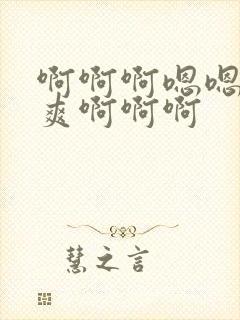 啊啊啊嗯嗯
爽啊啊啊
慧之言